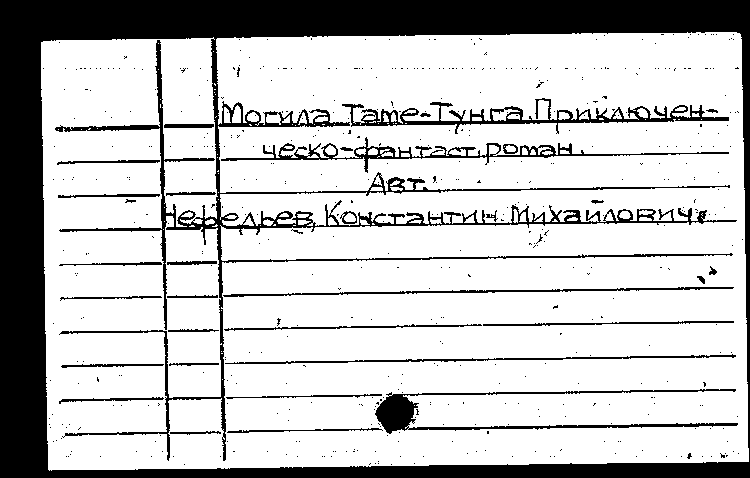 Могила Таме-Тунга. Приключен-
ческо-фантаст. роман.
Авт.:
Нефедьев, Константин Михайлович.